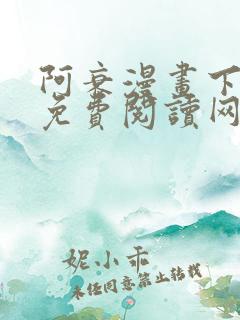 阿衰漫畫下
免費閱讀网
妮小乖
未经同意禁止转载